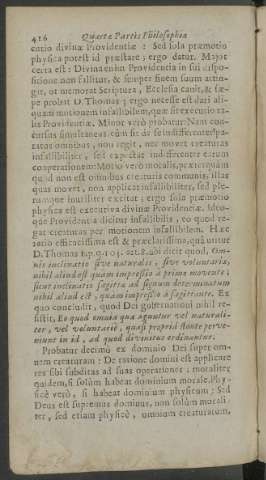 416 Quarta Partis Philosophia
entio divinæ Providentiæ : Sed sola præmotio
physica potest id præstare ; ergo datur. Major
certa est : Divina enim Providentia in sui disposi-
sicione non fallitur, & semper finem suum attin-
git, ut memorat Scriptura, Ecclesia canit, & sæ-
pe probat D. Thomas ; ergo necesse est dari ali-
quam motionem infallibilem, quæ sit executio ta-
lis Providentiæ. Minor verò probatur: Nam con-
cursus simultaneus cùm sit de se indifferens & pa-
ratus omnibus, non regit, nec movet creaturas
infallibiliter, sed expectat indifferenter earum
cooperationem: Motio verò moralis, præterquam
quod non est omnibus creaturis communis, illas
quas movet, non applicat infallibiliter, sed ple-
rumque inutiliter excitat ; ergo sola præmotio
physica est executiva divinæ Providentiæ. Ideo-
que Providentia dicitur infallibilis, eo quod re-
gat creaturas per motionem infallibilem. Hæc
ratio efficacissima est & præclarissima, quâ utitur
D. Thomas 1. p. q. 103. art. 8. ubi dicit quod, Om-
nis inclinatio sive naturalis, sive voluntaria,
nihil aliud est quàm impressio à primo movente ;
sicut inclinatio sagittæ ad signum determinatum
nihil aliud est, quàm impressio à sagittante. Ex
quo concludit, quod Dei gubernationi nihil re-
sistit, Eo quod omnia quæ aguntur vel naturali-
ter, vel voluntariè, quasi propriâ sponte perve-
niunt in id, ad quod divinitus ordinantur.
Probatur decimò ex dominio Dei super om-
nem creaturam : De ratione domini est applicare
res sibi subditas ad suas operationes : moraliter
quidem, si solùm habeat dominium morale, Phy-
sicè verò, si habeat dominium physicum ; Sed
Deus est supremus dominus, non solùm morali-
ter, sed etiam physicè, omnium creaturarum,